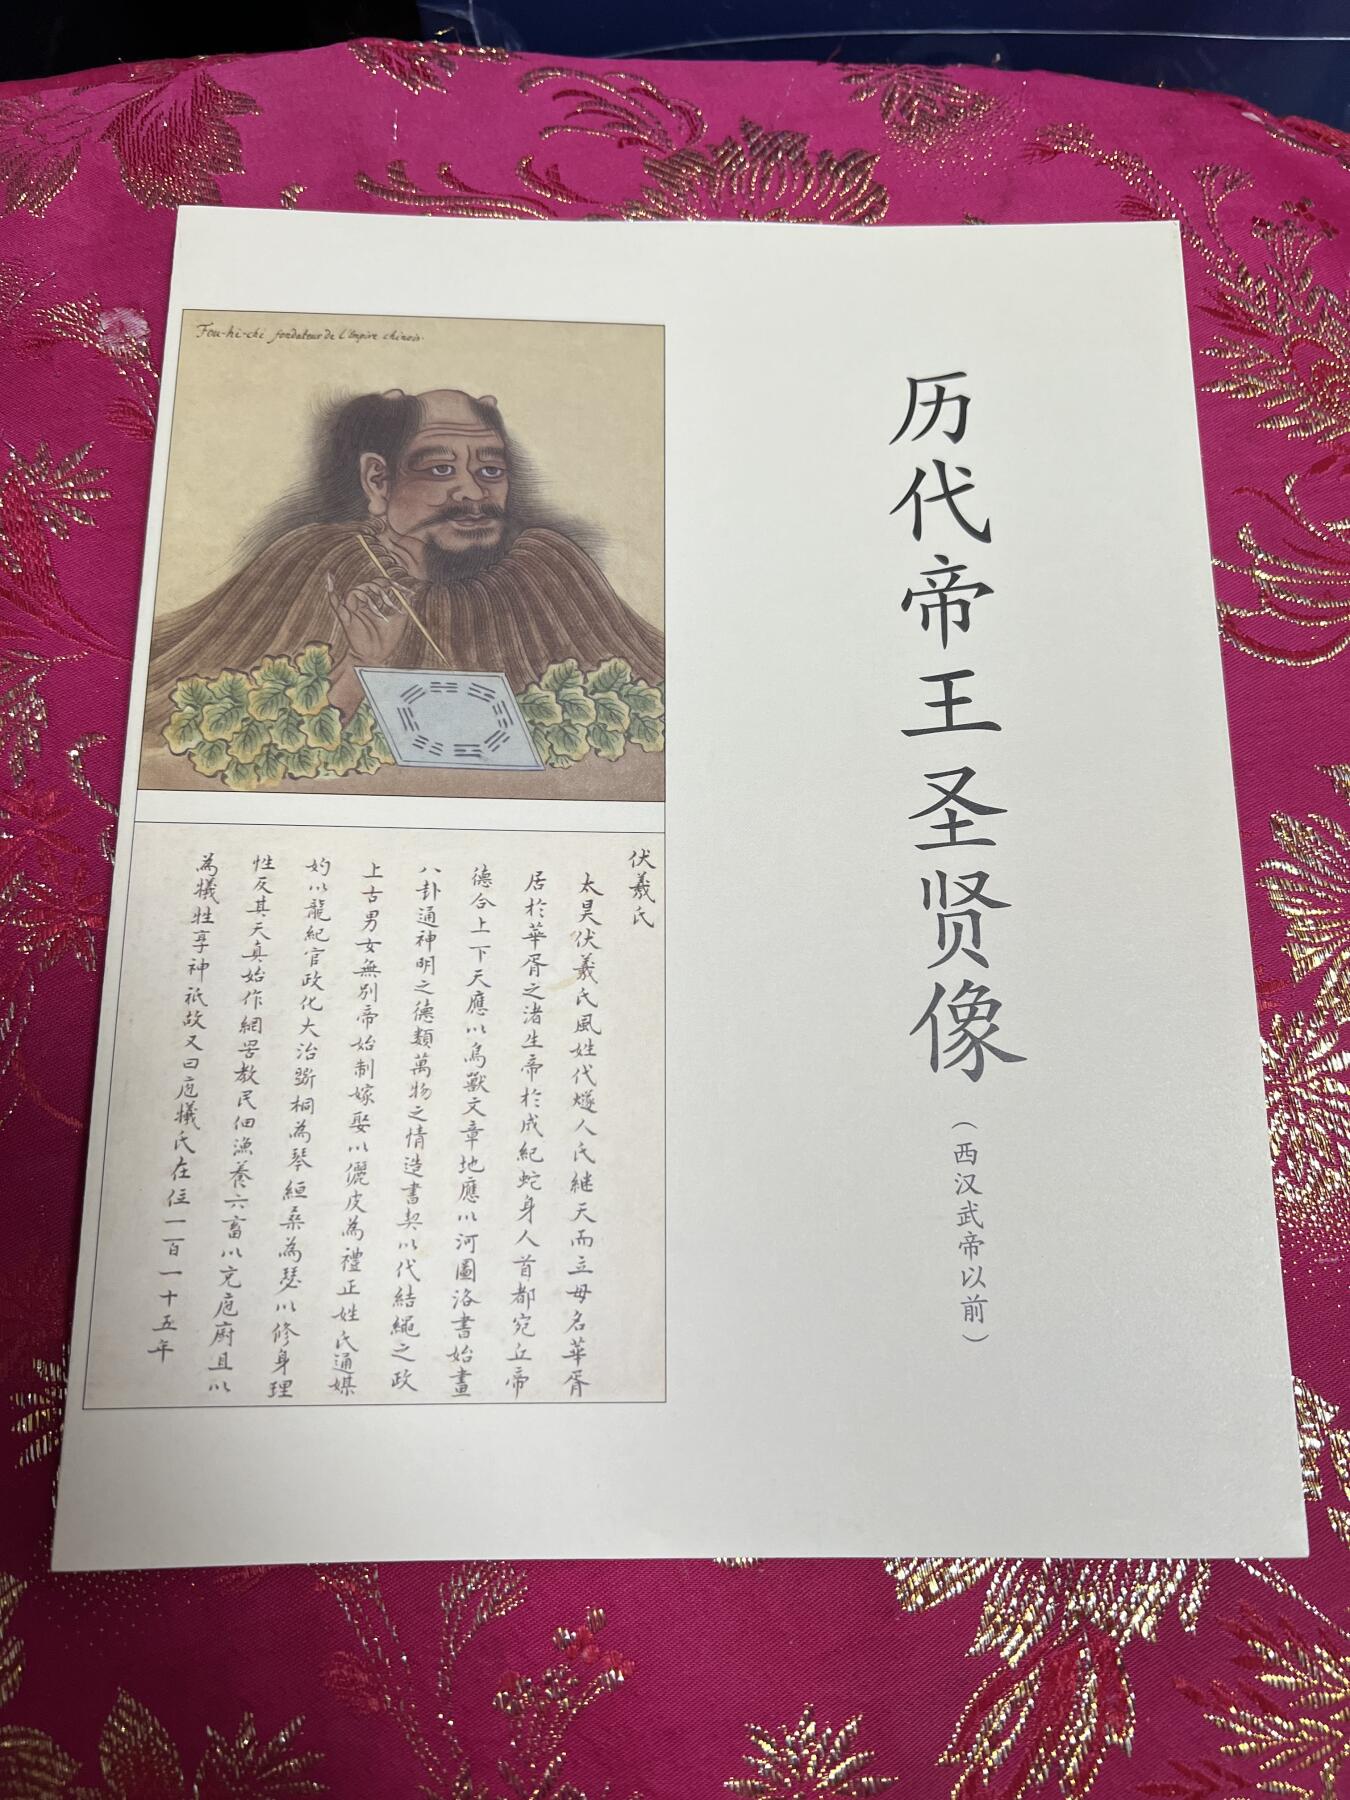 历代帝王圣贤像
（西汉武帝以前）
Fou-hi-chi fondateur de L'Empire chinois.
伏羲氏
太昊伏羲氏風姓代燧人氏継天而立母名華胥
居於華胥之渚生帝於成紀蛇身人首都宛丘帝
德合上下天應以鳥獸文章地應以河圖洛書始畫
八卦通神明之德類萬物之情造書契以代結繩之政
上古男女無別帝始制嫁娶以儷皮為禮正姓氏通媒
妁以龍紀官政化大治斲桐為琴絙桑為瑟以修身理
性反其天真始作網罟教民佃漁養六畜以充庖廚且以
為犧牲享神祇故又曰庖犧氏在位一百一十五年